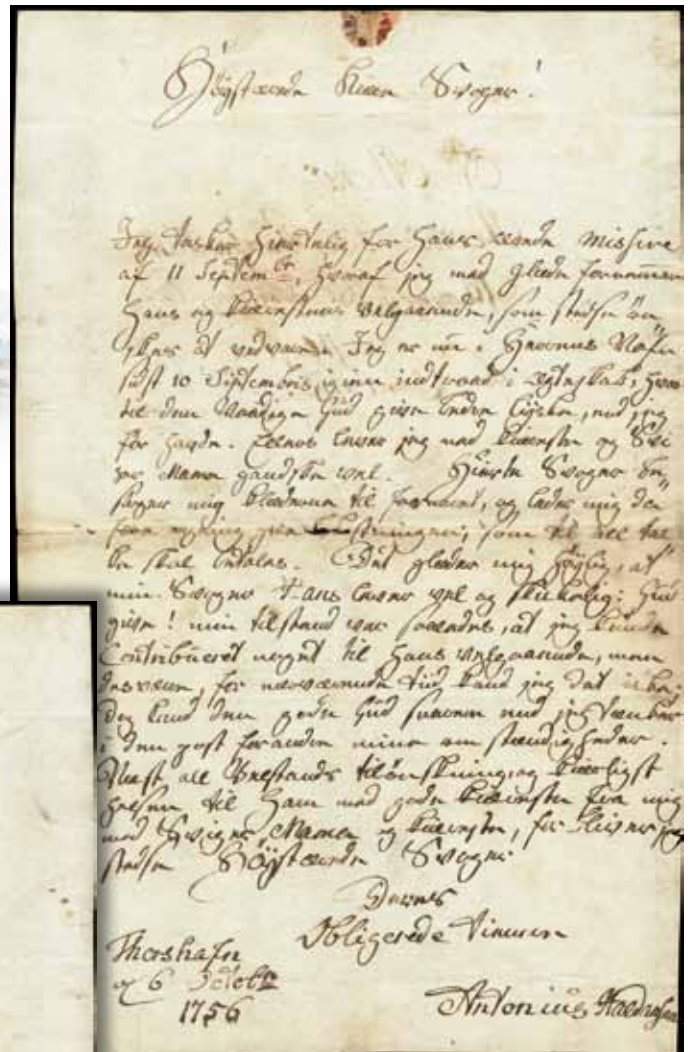 Høystærede kiere Svoger!
Jeg tacker hiertelig for Hans ærede Missive
af 11 Septembr, hvoraf jeg med glæde fornemmer
Hans og velgaaende, som stedse øn
skes at vedvare. Jeg er nu i Herrens Nafn
sidst 10 Septembris igien indtraad i ægteskab, hvor
til den Naadige Gud give bedre lycke, end jeg
før havde. Ellers lever jeg med Kieresten og Svi
ger Mama gandske vel. Hierte Svoger
mig til, og lader mig
som til all
skal betales. Det glæder mig høylig, at
min Svoger Hans lever vel og lykkelig: Gud
give! min tilstand var saaledes, at jeg kunde
Contribueret noget til Hans velgaaende, men
desværre, for nærværende tid kand jeg det icke;
dog kand den gode Gud snarere end jeg tænker
i den post forandre mine omstændigheder.
Næst all Velstands tilønskning og kierligst
hilsen til Ham med gode Kieresten fra mig
med Sviger Mama og Kieresten, forbliver jeg
stedse Høystærede Svoger
Deres
Obligerede tienere
Thorshafn
d 6 Octobr
1756
Antonius